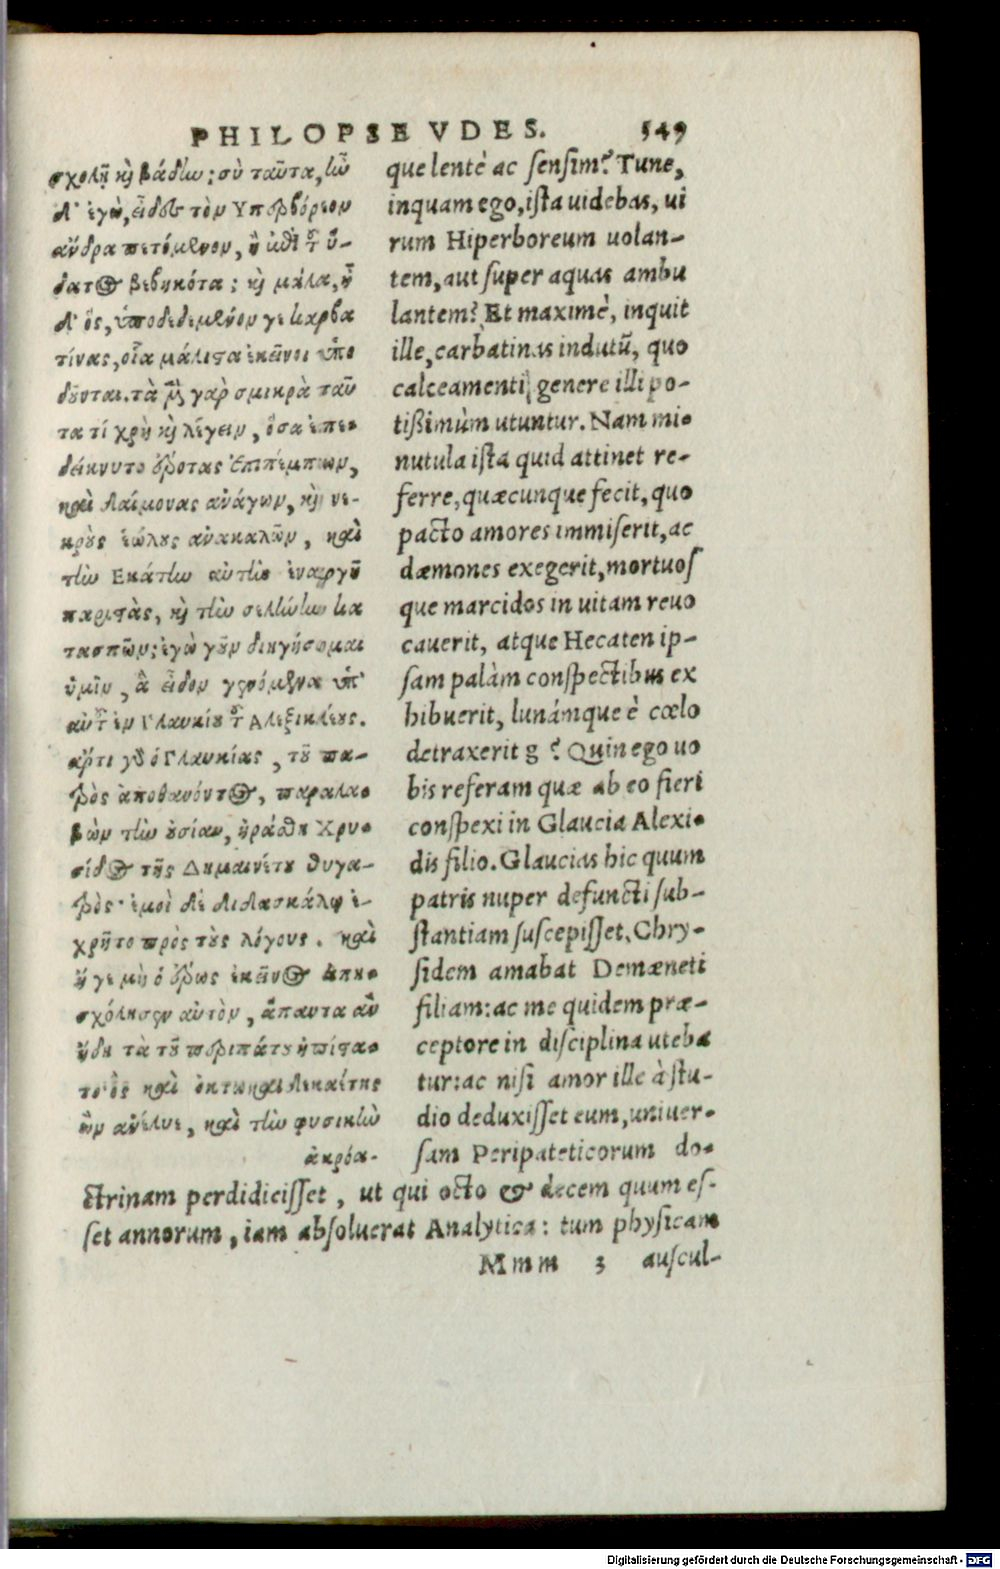 PHILOPSEVDES. 549
σχολῇ καὶ βάδην; σὺ ταῦτα, ἦν
δ' ἐγὼ, εἶδες τὸν Υπερβόρεον
ἄνδρα πετόμενον, ἢ ἐπὶ τοῦ ὕ-
δατος βεβηκότα; καὶ μάλα, ἦ
δ' ὃς, ὑποδεδεμένον γε καρβα
τίνας, οἷα μάλιστα ἐκεῖνοι ὑπο
δοῦνται. τὰ μὲν γὰρ σμικρὰ ταῦ
τα τί χρὴ καὶ λέγειν, ὅσα ἐπε-
δείκνυτο ἔρωτας ἐπιπέμπων,
καὶ δαίμονας ἀνάγων, καὶ νε-
κροὺς ἑώλους ἀνακαλῶν, καὶ
τὴν Εκάτην αὐτὴν ἐναργῆ
παριστὰς, καὶ τὴν σελήνην κα
τασπῶν; ἐγὼ γοῦν διηγήσομαι
ὑμῖν, ἃ εἶδον γενόμενα ὑπ'
αὐτοῦ ἐν Γλαυκίου τοῦ Αλεξικλέους.
ἄρτι γὰρ ὁ Γλαυκίας, τοῦ πα-
τρὸς ἀποθανόντος, παραλα-
βὼν τὴν οὐσίαν, ἠράσθη Χρυ-
σίδος τῆς Δημαινέτου θυγα-
τρὸς· ἐμοὶ δὲ διδασκάλῳ ἐ-
χρῆτο πρὸς τοὺς λόγους. καὶ
εἴ γε μὴ ὁ ἔρως ἐκεῖνος ἀπη-
σχόλησεν αὐτὸν, ἅπαντα ἂν
ἤδη τὰ τοῦ περιπάτου ἠπίστα-
το· ὃς καὶ ὀκτωκαιδεκαέτης
ὢν ἀνέλυε, καὶ τὴν φυσικὴν
ἀκρόα-
que lentè ac sensim? Tune,
inquam ego, ista uidebas, ui
rum Hiperboreum uolan-
tem, aut super aquas ambu
lantem? Et maximè, inquit
ille, carbatinas indutũ, quo
calceamenti genere illi po-
tißimùm utuntur. Nam mi-
nutula ista quid attinet re-
ferre, quæcunque fecit, quo
pacto amores immiserit, ac
dæmones exegerit, mortuos
que marcidos in uitam reuo
cauerit, atque Hecaten ip-
sam palàm conspectibus ex
hibuerit, lunámque è cœlo
detraxerit g? Quin ego uo
bis referam quæ ab eo fieri
conspexi in Glaucia Alexi-
dis filio. Glaucias hic quum
patris nuper defuncti sub-
stantiam suscepisset, Chry-
sidem amabat Demæneti
filiam: ac me quidem præ-
ceptore in disciplina uteba
tur: ac nisi amor ille à stu-
dio deduxisset eum, uniuer-
sam Peripateticorum do-
ctrinam perdidicisset, ut qui octo & decem quum es-
set annorum, iam absoluerat Analytica: tum physicam
Mmm 3 auscul-
Digitalisierung gefördert durch die Deutsche Forschungsgemeinschaft - DFG